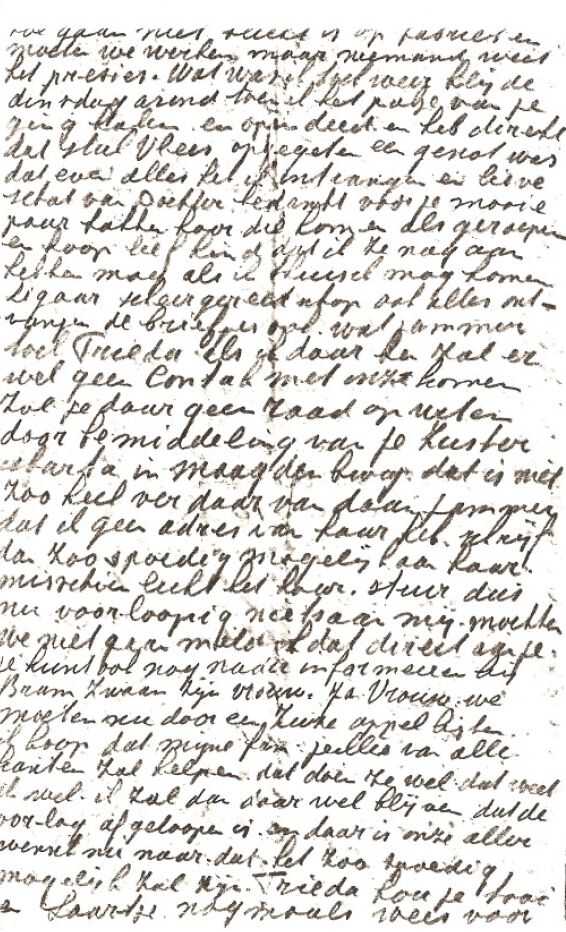 we gaan niet of fabriek en
moeten we werken maar niemand weet
het presies. Wat was weer blij de
dinsdag avond toen ik het page van je
ging halen en open deed en heb direkt
dat stuk Vlees opgegeten een genot was
dat even alles het ontvangen en lieve
schat van Dochter bedankt voor je mooie
paar die komen als geroepen
en hoop lief kind dat ik ze nog aan
hebben mag als ik thuis mag komen
sigaar scheergereed ook alles ont-
vangen de briefjes ook wat jammer
Frieda als ik daar ben zal er
wel geen Contak met onze komen
zal je daar geen raad op weten
door bemiddeling van je zuster
Marta in Maagdenburg dat is niet
zoo heel ver daar van daan jammer
dat ik geen adres van haar heb schrijf
dan zoo spoedig mogelijk aan haar
misschien lucht het haar. stuur dus
nu voorloopig niets aan mij. mochten
we niet gaan meld ik dat direct aan je.
je kunt ook nog nader informeeren bij
Bram Zwaan zijn vrouw. Ja Vrouw we
moeten nu door een Zure appel bijten
ik hoop dat mijne fam. jullie van alle
kanten zal helpen dat doen ze wel dat weet
ik wel ik zal dan daar wel blijven dat de
oorlog afgeloopen is en daar is onze aller
wensch nu naar dat het zoo spoedig
mogelijk zal zijn. Frieda hou je taai
en Saartje nogmaals wees voor